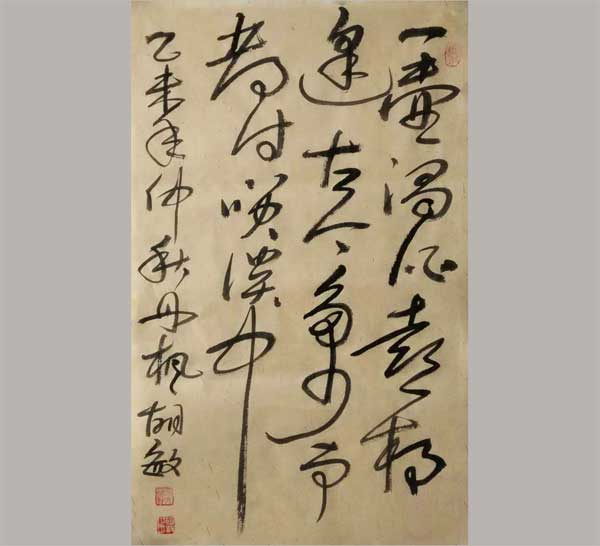 一壺濁酒喜相
逢古今多少事
都付咲談中
乙未年仲秋丹楓胡敏